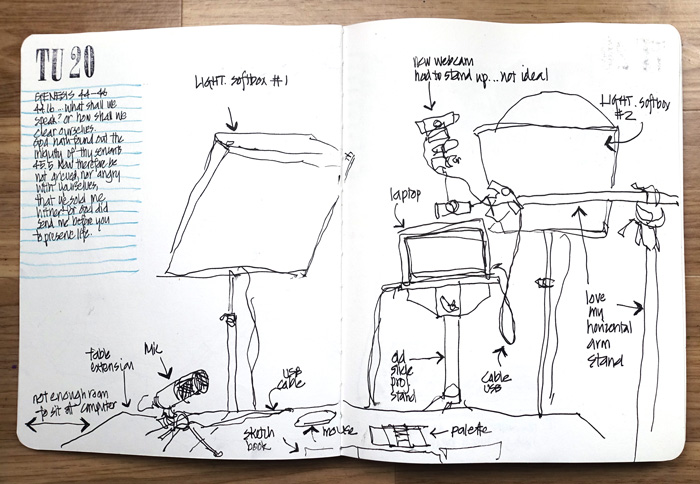 TU 20
GENESIS 44-46
44.16 ... what shall we
speak? or how shall we
clear ourselves
God hath found out the
iniquity of thy servants
45.5 Now therefore be
not grieved, nor angry
with yourselves,
that ye sold me
hither: for God did
send me before you
to preserve life.
LIGHT. softbox #1
new webcam
had to stand up...not ideal
LIGHT. softbox
#2
laptop
love
my
horizontal
arm
stand
old
slide
proj.
stand
cable
USB
table
extension
Mic
USB
cable
not enough room
to sit at computer
sketch
book
mouse
palette